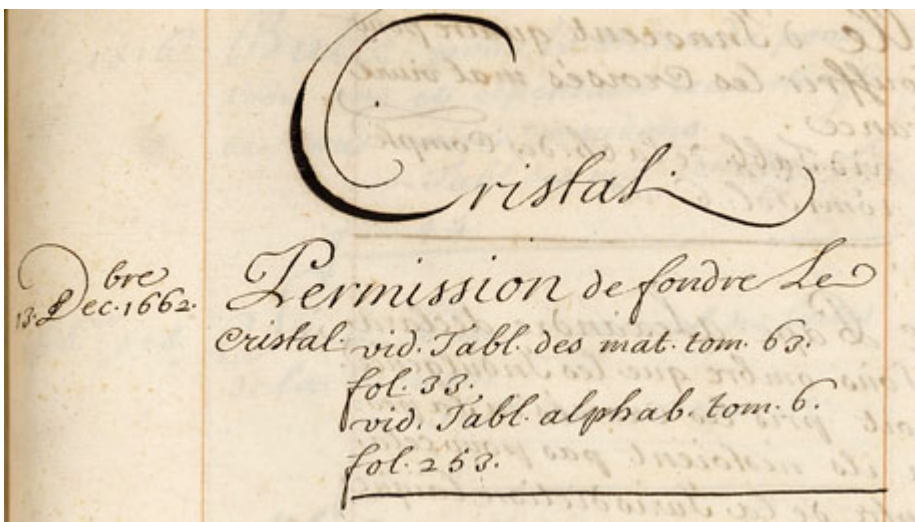 Cristal.
13. Dec.bre 1662. Permission de fondre Le
cristal. vid. Tabl. des mat. tom. 63.
fol. 33.
vid. Tabl. alphab. tom. 6.
fol. 253.